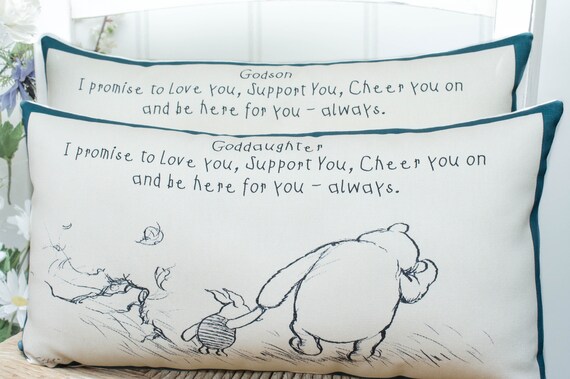 Godson
I promise to Love you, Support You, Cheer you on
and be here for you - always.
Goddaughter
I promise to Love you, Support You, Cheer You on
and be here for you - always.